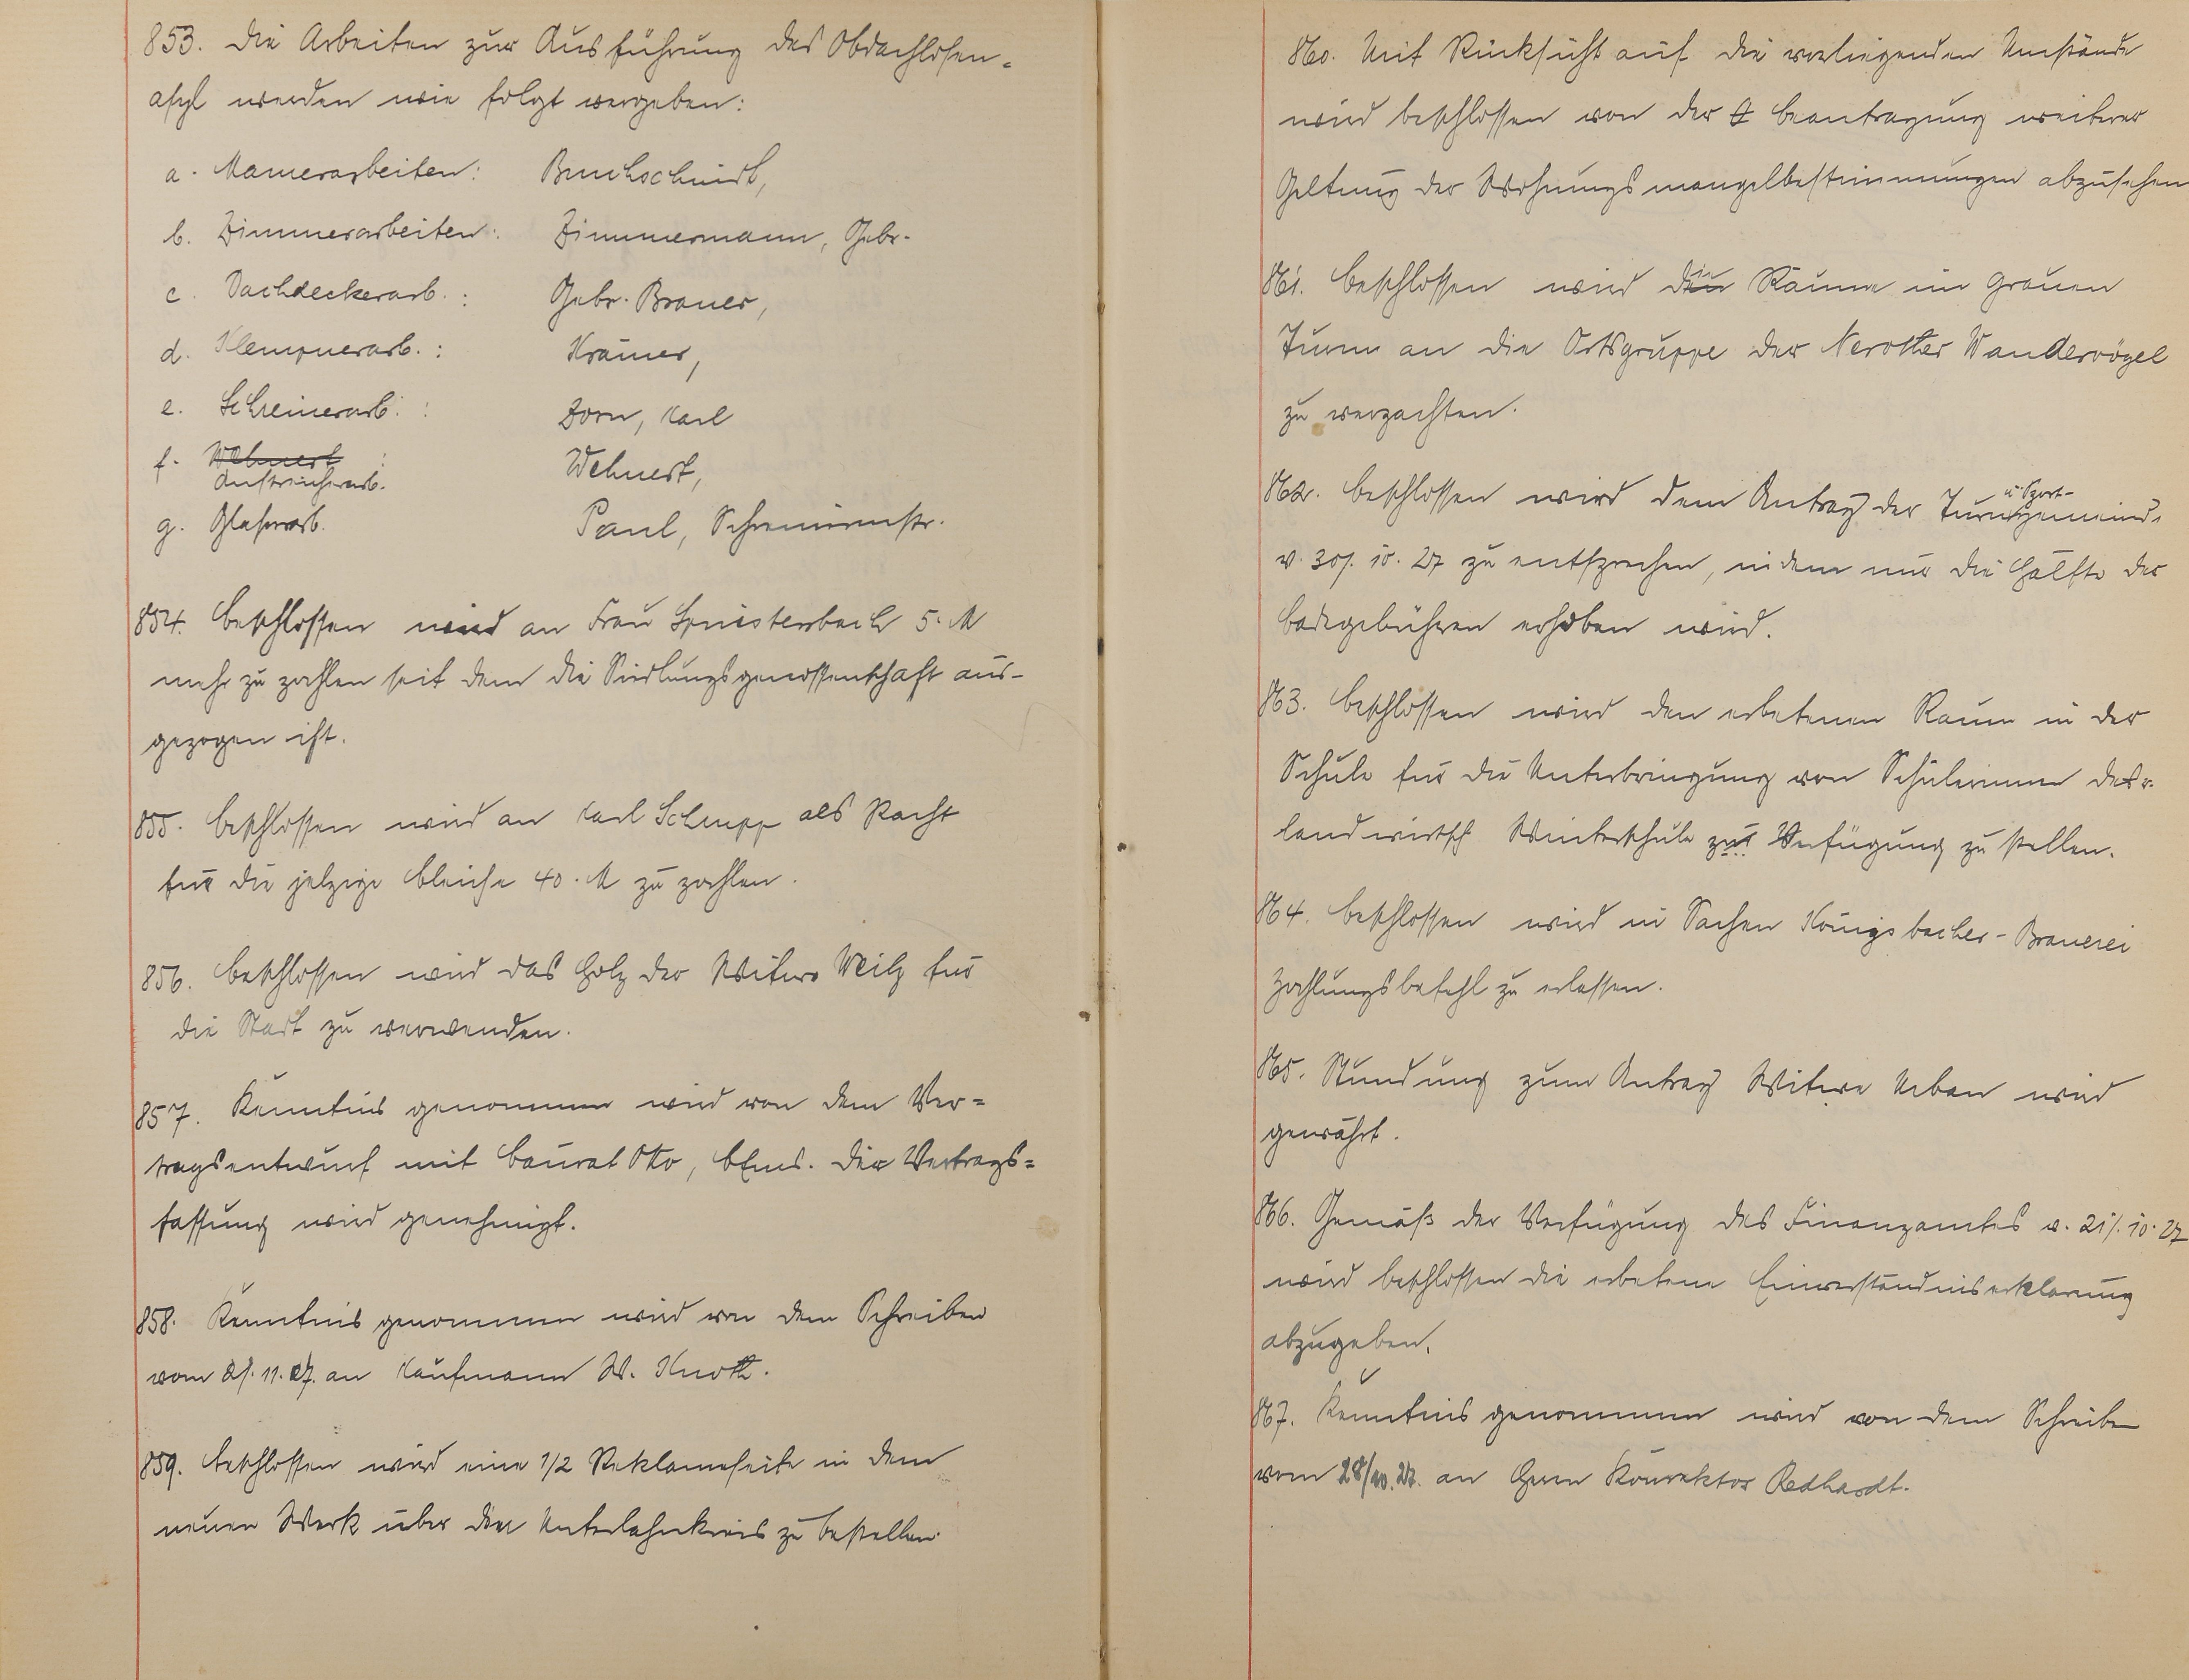 853. Die Arbeiten zur Ausführung des Obdachlosen-
asyl werden wie folgt vergeben:
a. Maurerarbeiten: Buchschmidt,
b. Zimmerarbeiten: Zimmermann, Gebr.
c. Dachdeckerarb.: Gebr. Brauer,
d. Klempnerarb.: Krämer,
e. Schreinerarb.: Zorn, Karl
f. Wehnert : Wehnert,
Anstreicherarb.
g. Glaserarb. Paul, Schreinermstr.
854. Beschlossen wird an Frau 5. M
mehr zu zahlen seit dem die Siedlungsgenossenschaft aus-
gezogen ist.
855. Beschlossen wird an Karl Schupp als Pacht
für die jetzige Bleiche 40. M zu zahlen.
856. Beschlossen wird das Holz der Witwe Weilz für
die Stadt zu verwenden.
857. Kenntnis genommen wird von dem Ver-
tragsentwurf mit Baurat Otto, BEms. Die Vertrags-
fassung wird genehmigt.
858. Kenntnis genommen wird von dem Schreiben
vom 2/. 11. 27. an Kaufmann W. Knoth.
859. Beschlossen wird eine 1/2 Reklameseite in dem
neuen Werk über den Unterlahnkreis zu bestellen.
860. Mit Rücksicht auf die vorliegenden Umstände
wird beschlossen von der Beantragung weiterer
Geltung der Wohnungsmangelbestimmungen abzusehen
861. Beschlossen wird die Räume im Grauen
Turm an die Ortsgruppe der Nerother Wandervögel
zu verpachten.
862. Beschlossen wird dem Antrag der Turn u. Sport-gemeinde
v. 30/. 10. 27 zu entsprechen, indem nur die Hälfte der
Badegebühren erhoben wird.
863. Beschlossen wird den erbetenen Raum in der
Schule für die Unterbringung von Schülerinnen der
landwirtsch Winterschule zur Verfügung zu stellen.
864. Beschlossen wird in Sachen Königsbacher-Brauerei
Zahlungsbefehl zu erlassen.
865. Stundung zum Antrag Witwe Urban wird
gewährt.
866. Gemäß der Verfügung des Finanzamtes v. 21/. 10. 27
wird beschlossen die erbetene Einverständniserklärung
abzugeben.
867. Kenntnis genommen wird von dem Schreiben
vom 28/10. 27. an Herrn Konrektor Redhardt.